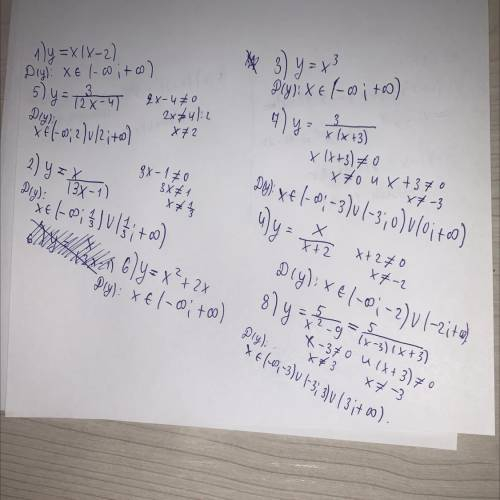 1) y = x(x-2)
D(y): x ∈ (-∞; +∞)
5) y = 3/(2x-4) 2x-4≠0
D(y): 2x≠4 |:2
x ∈ (-∞; 2) ∪ (2; +∞) x≠2
2) y = x/(3x-1) 3x-1≠0
D(y): 3x≠1
x ∈ (-∞; 1/3) ∪ (1/3; +∞) x≠1/3
6) y = x² + 2x
D(y): x ∈ (-∞; +∞)
3) y = x³
D(y): x ∈ (-∞; +∞)
7) y = 3/x(x+3)
x(x+3)≠0
x≠0 и x+3≠0
x≠-3
D(y): x ∈ (-∞; -3) ∪ (-3; 0) ∪ (0; +∞)
4) y = x/x+2 x+2≠0
x≠-2
D(y): x ∈ (-∞; -2) ∪ (-2; +∞)
8) y = 5/x²-9 = 5/(x-3)(x+3)
x-3≠0 и (x+3)≠0
D(y): x≠3 x≠-3
x ∈ (-∞; -3) ∪ (-3; 3) ∪ (3; +∞).